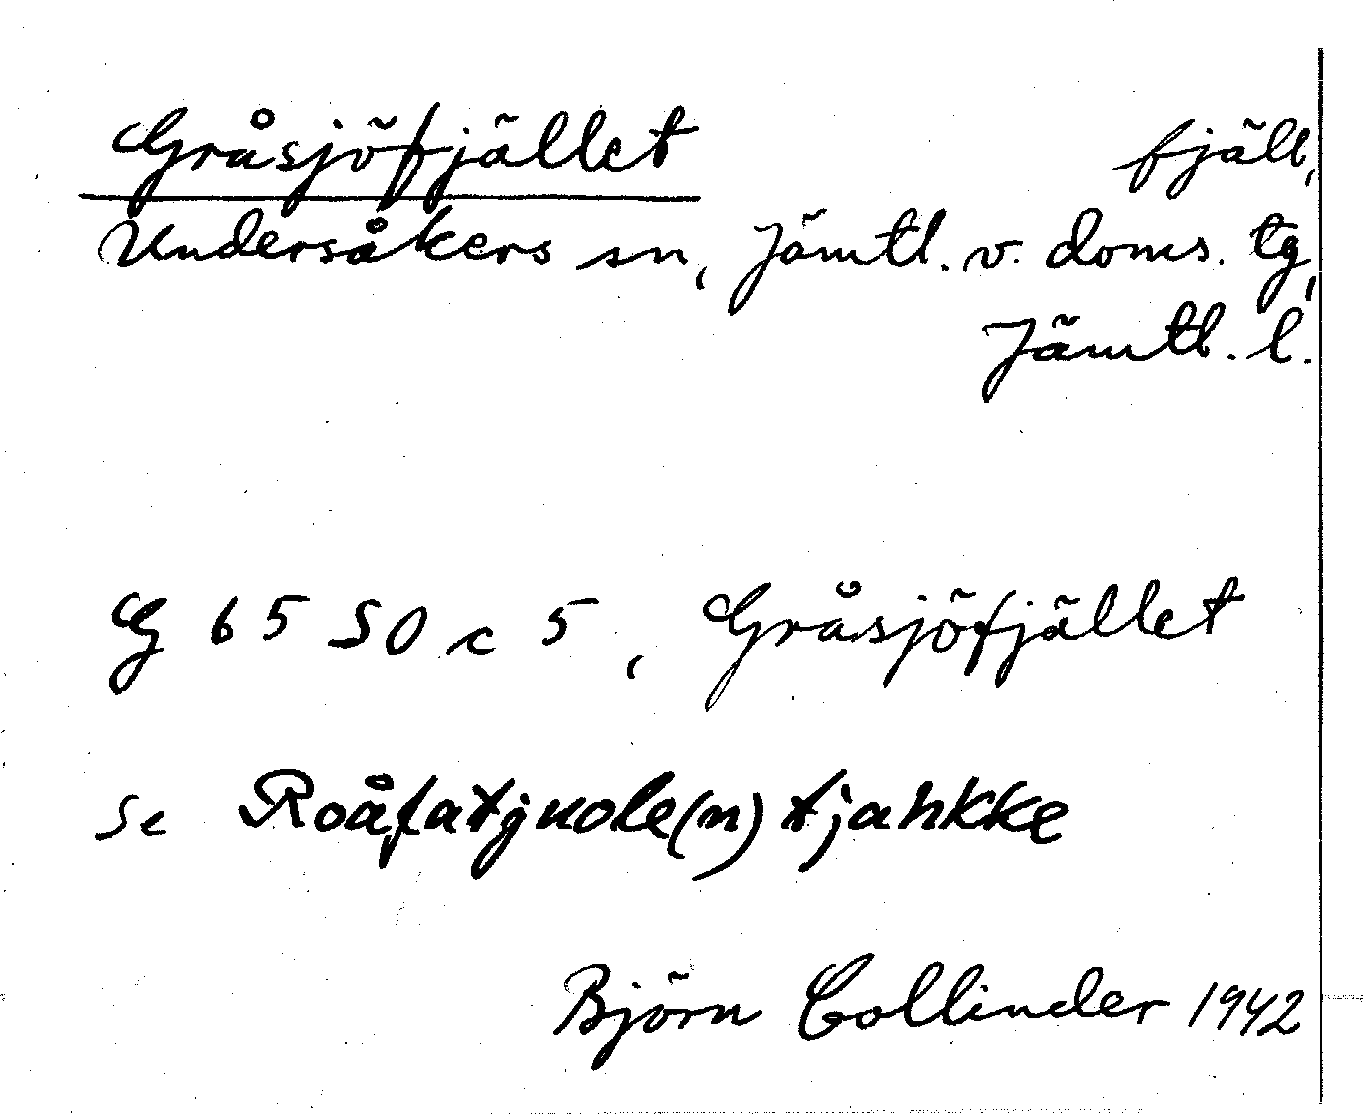 Gråsjöfjället fjäll,
Undersåkers sn, Jämtl. v. doms. tg,
Jämtl. l.
G 65 SO c 5, Gråsjöfjället
Se Roåfatjuole(n) tjahkke
Björn Collinder 1942